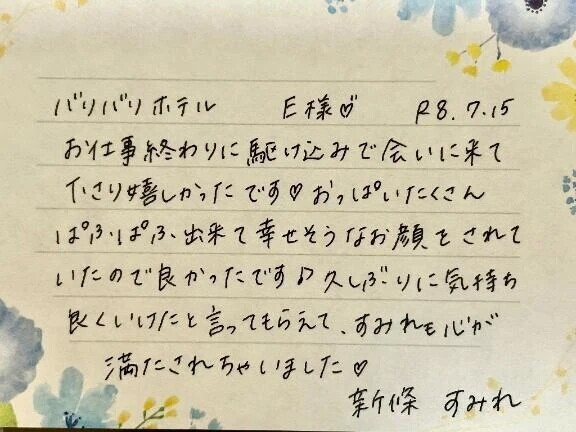 バリバリホテル E様♡ R8.7.15
お仕事終わりに駆け込みで会いに来て
下さり嬉しかったです♡おっぱいたくさん
ぱふぱふ出来て幸せそうなお顔をされて
いたので良かったです♪久しぶりに気持ち
良くいけたと言ってもらえて、すみれも心が
満たされちゃいました♡
新條 すみれ